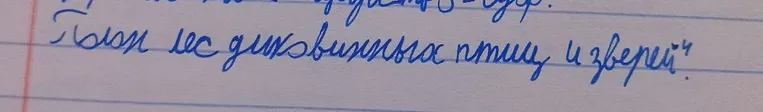 Полон лес диковинных птиц и зверей".